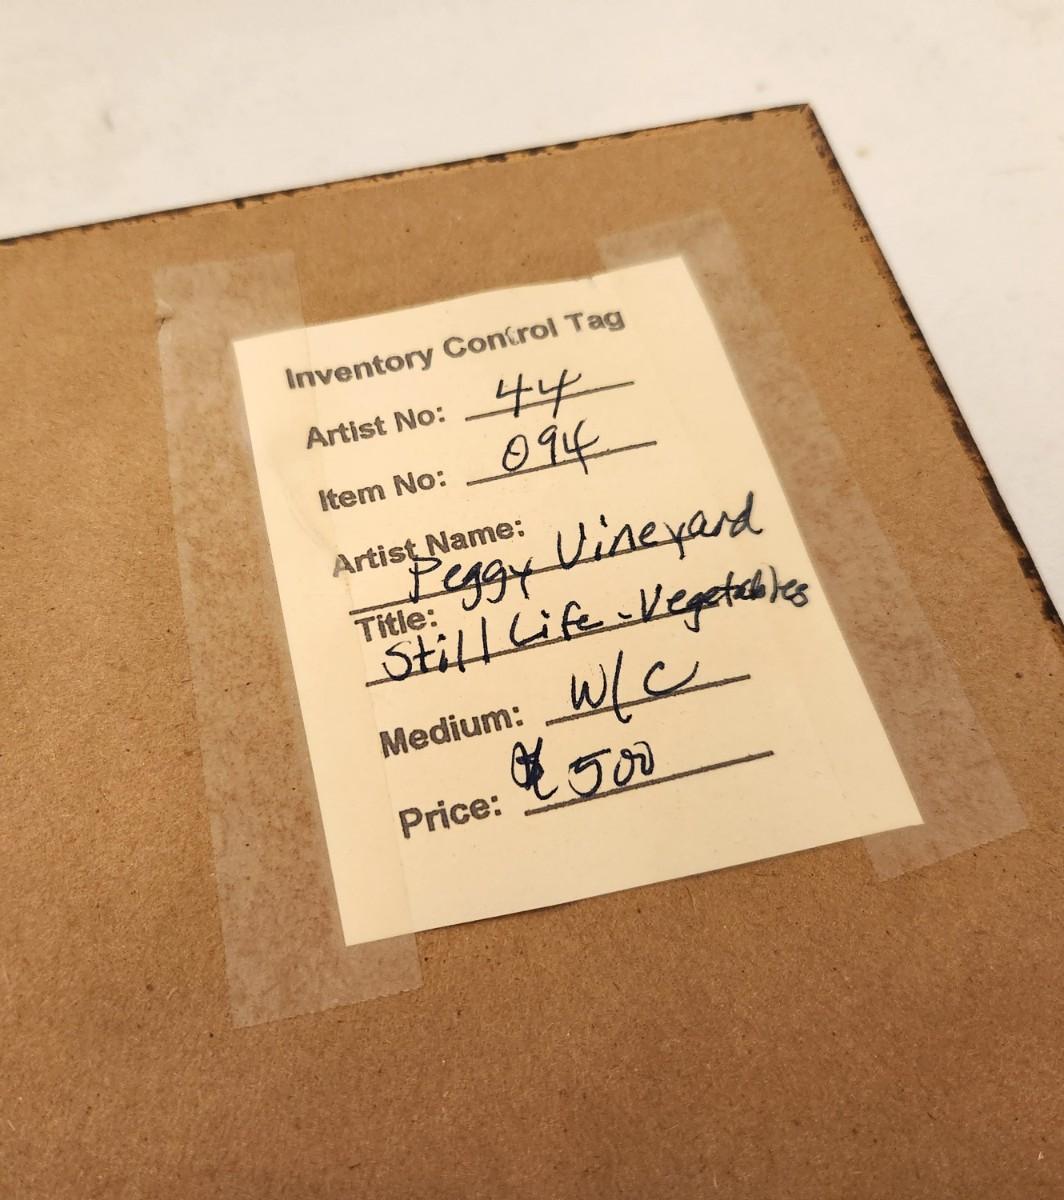 Inventory Control Tag
Artist No: 44
Item No: 094
Artist Name:
Peggy Vineyard
Title:
Still Life - Vegetables
Medium: W/C
Price: 500